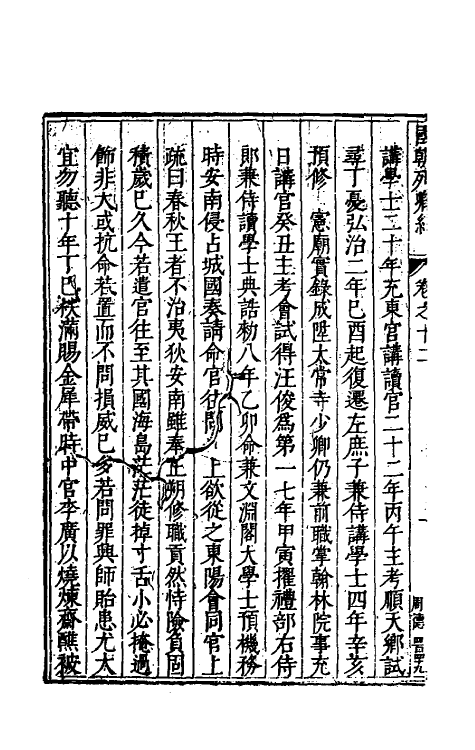 國朝列卿紀 卷之十二
講學士二十年充東宮講讀官二十二年丙午主考順天鄉試
尋丁憂弘治二年巳酉起復遷左庶子兼侍講學士四年辛亥
預修 憲廟實錄成陞太常寺少卿仍兼前職掌翰林院事充
日講官癸丑主考會試得汪俊爲第一七年甲寅擢禮部右侍
郎兼侍讀學士典誥勑八年乙卯命兼文淵閣大學士預機務
時安南侵占城國奏請命官往問 上欲從之東陽會同官上
疏曰春秋王者不治夷狄安南雖奉正朔修職貢然恃險負固
積歲巳久今若遣官往至其國海島茫茫徒掉寸舌小必掩過
飾非大或抗命若置而不問損威巳多若問罪興師貽患尤大
宜勿聽十年丁巳秩滿賜金犀帶時中官李廣以燒煉齋醮被